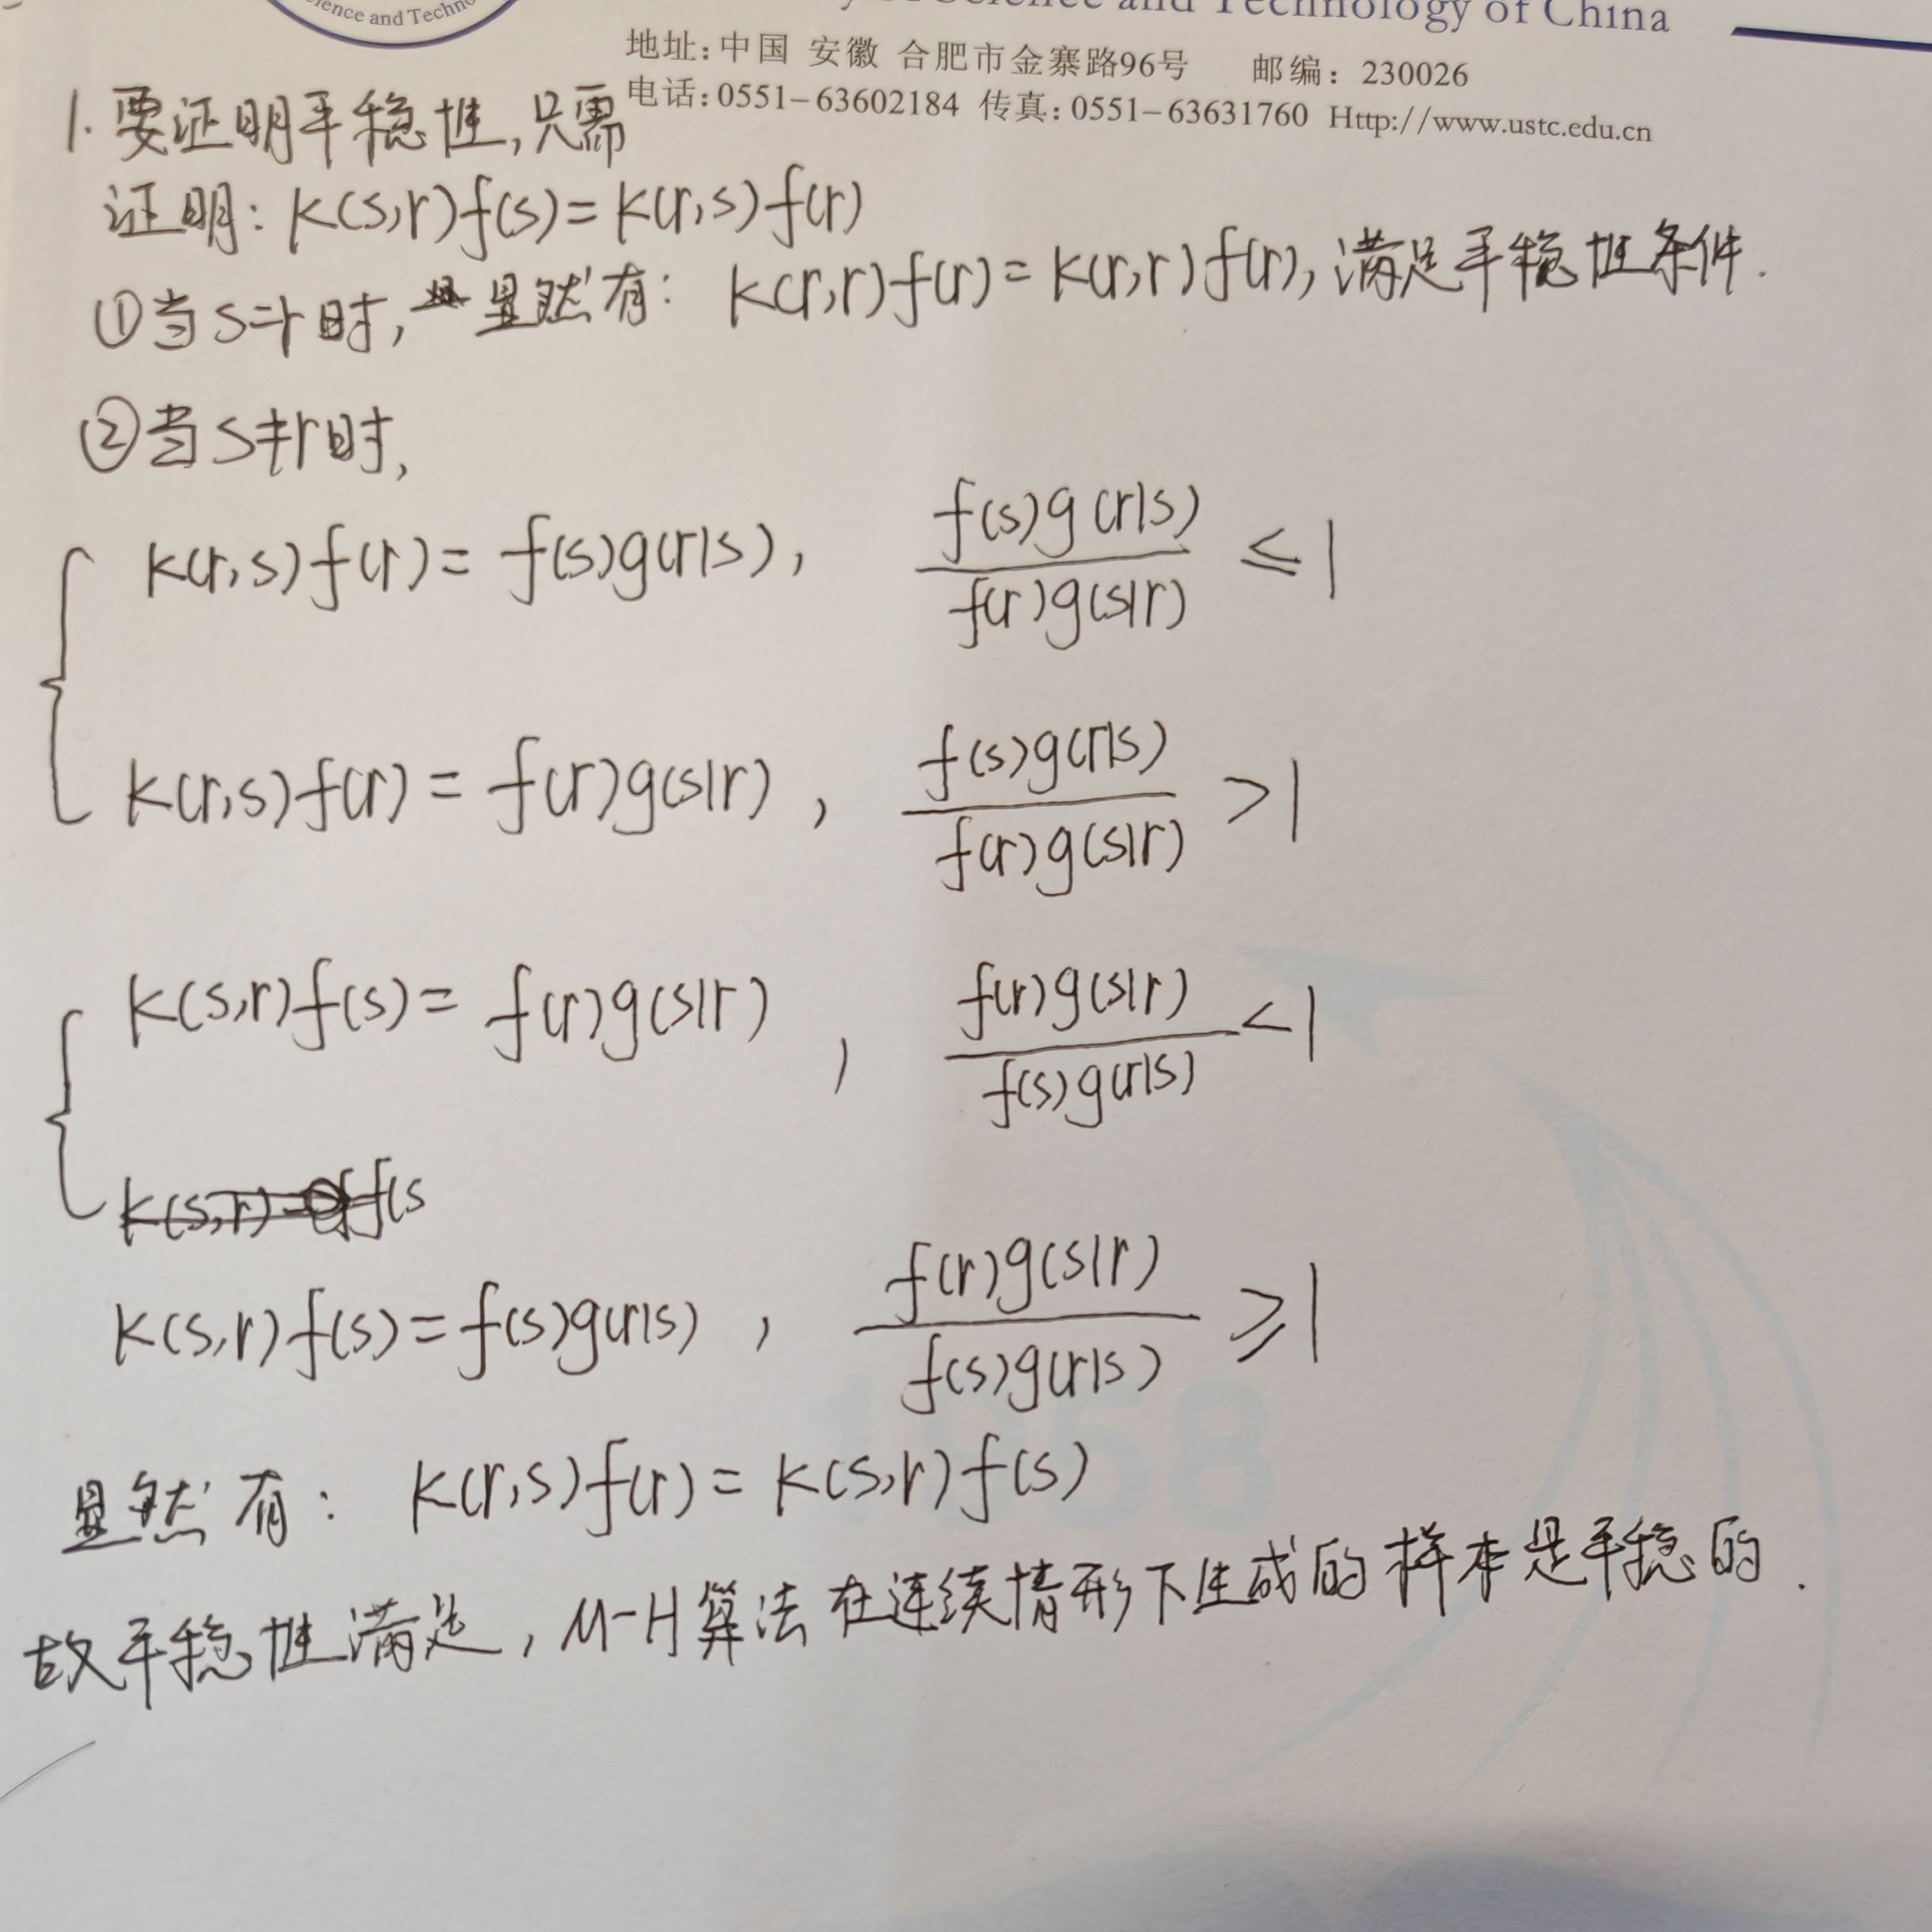 ience and Techno
y of Science and Technology of China
地址:中国 安徽 合肥市金寨路96号 邮编：230026
电话:0551-63602184 传真:0551-63631760 Http://www.ustc.edu.cn
1. 要证明平稳性,只需
证明: K(s,r)f(s)=K(r,s)f(r)
①当s=r时, 显然有: K(r,r)f(r)=K(r,r)f(r), 满足平稳性条件.
②当s≠r时,
K(r,s)f(r)=f(s)g(r|s), f(s)g(r|s) / f(r)g(s|r) ≤1
K(r,s)f(r)=f(r)g(s|r), f(s)g(r|s) / f(r)g(s|r) >1
K(s,r)f(s)=f(r)g(s|r), f(r)g(s|r) / f(s)g(r|s) <1
f(s
K(s,r)f(s)=f(s)g(r|s), f(r)g(s|r) / f(s)g(r|s) ≥1
显然有: K(r,s)f(r)=K(s,r)f(s)
故平稳性满足, M-H算法在连续情形下生成的样本是平稳的.
1958